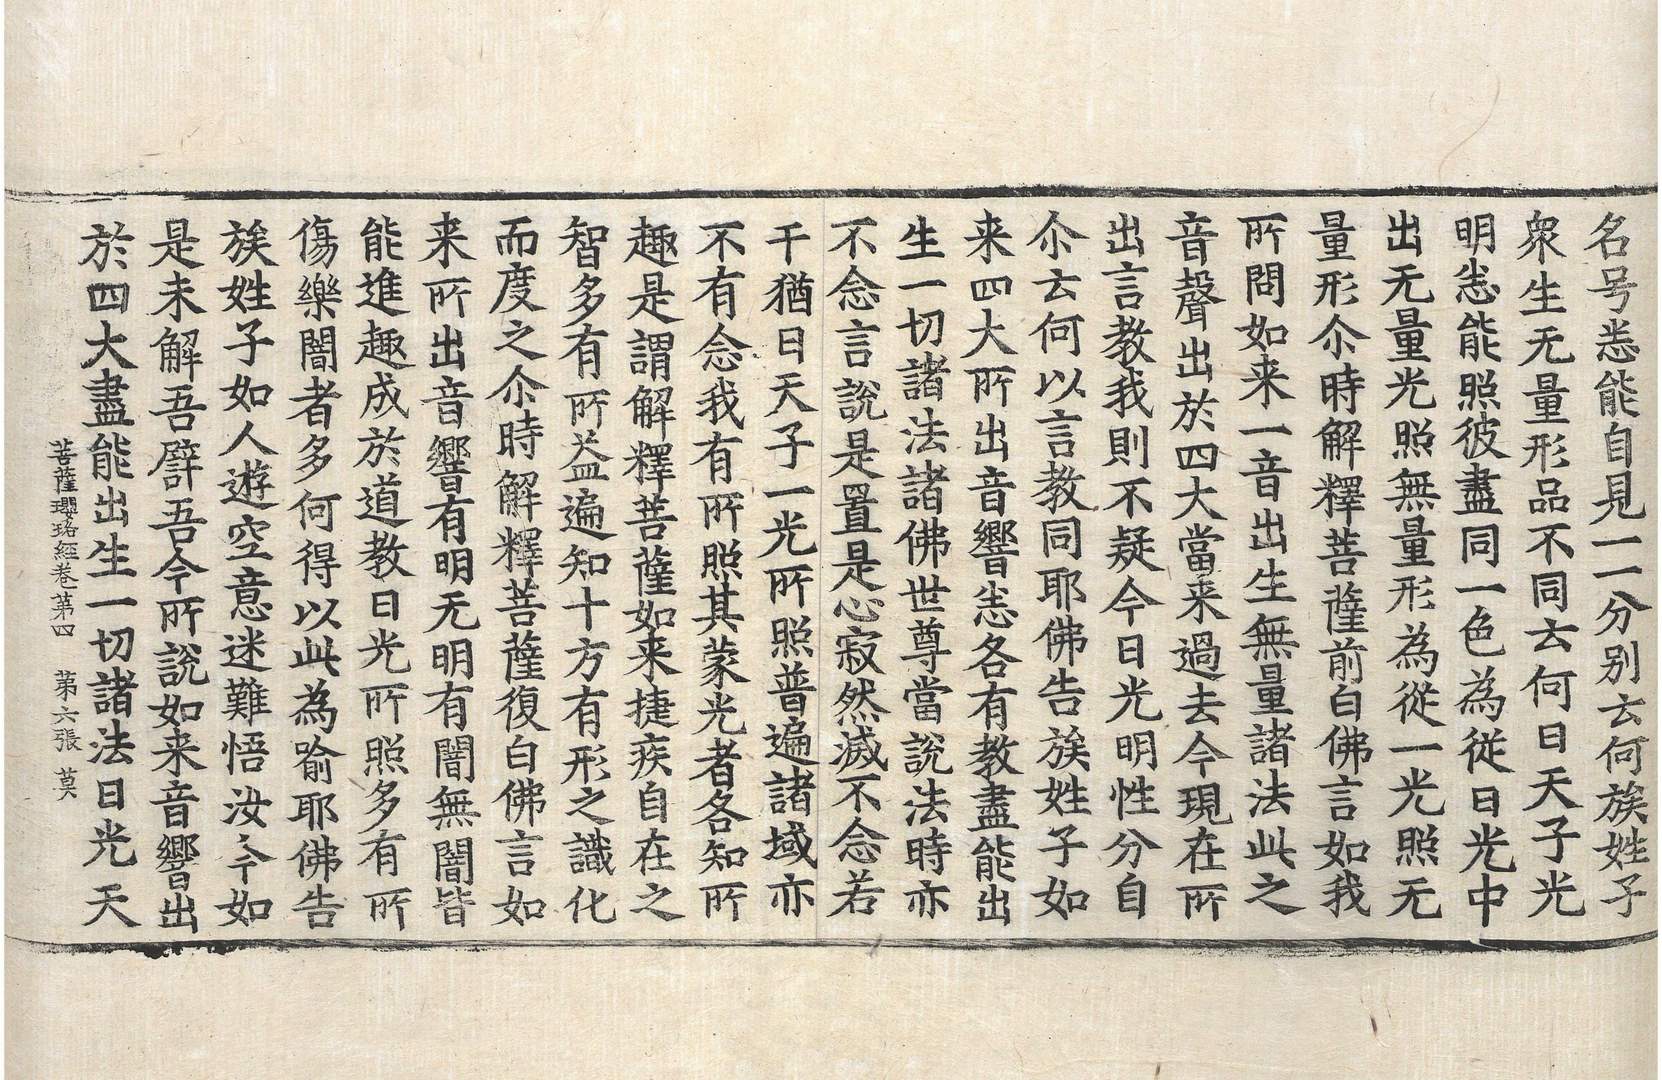 名号悉能自見一一分別云何族姓子
衆生无量形品不同云何日天子光
明悉能照彼盡同一色為從日光中
出无量光照無量形為從一光照无
量形尒時解釋菩薩前白佛言如我
所問如来一音出生無量諸法此之
音聲出於四大當来過去今現在所
出言教我則不疑今日光明性分自
尒云何以言教同耶佛告族姓子如
来四大所出音響悉各有教盡能出
生一切諸法諸佛世尊當說法時亦
不念言說是置是心寂然滅不念若
干猶日天子一光所照普遍諸域亦
不有念我有所照其蒙光者各知所
趣是謂解釋菩薩如来捷疾自在之
智多有所益遍知十方有形之識化
而度之尒時解釋菩薩復白佛言如
来所出音響有明无明有闇無闇皆
能進趣成於道教日光所照多有所
傷樂闇者多何得以此為喻耶佛告
族姓子如人遊空意迷難悟汝今如
是未解吾譬吾今所說如来音響出
於四大盡能出生一切諸法日光天
菩薩瓔珞經卷第四 第六張 莫